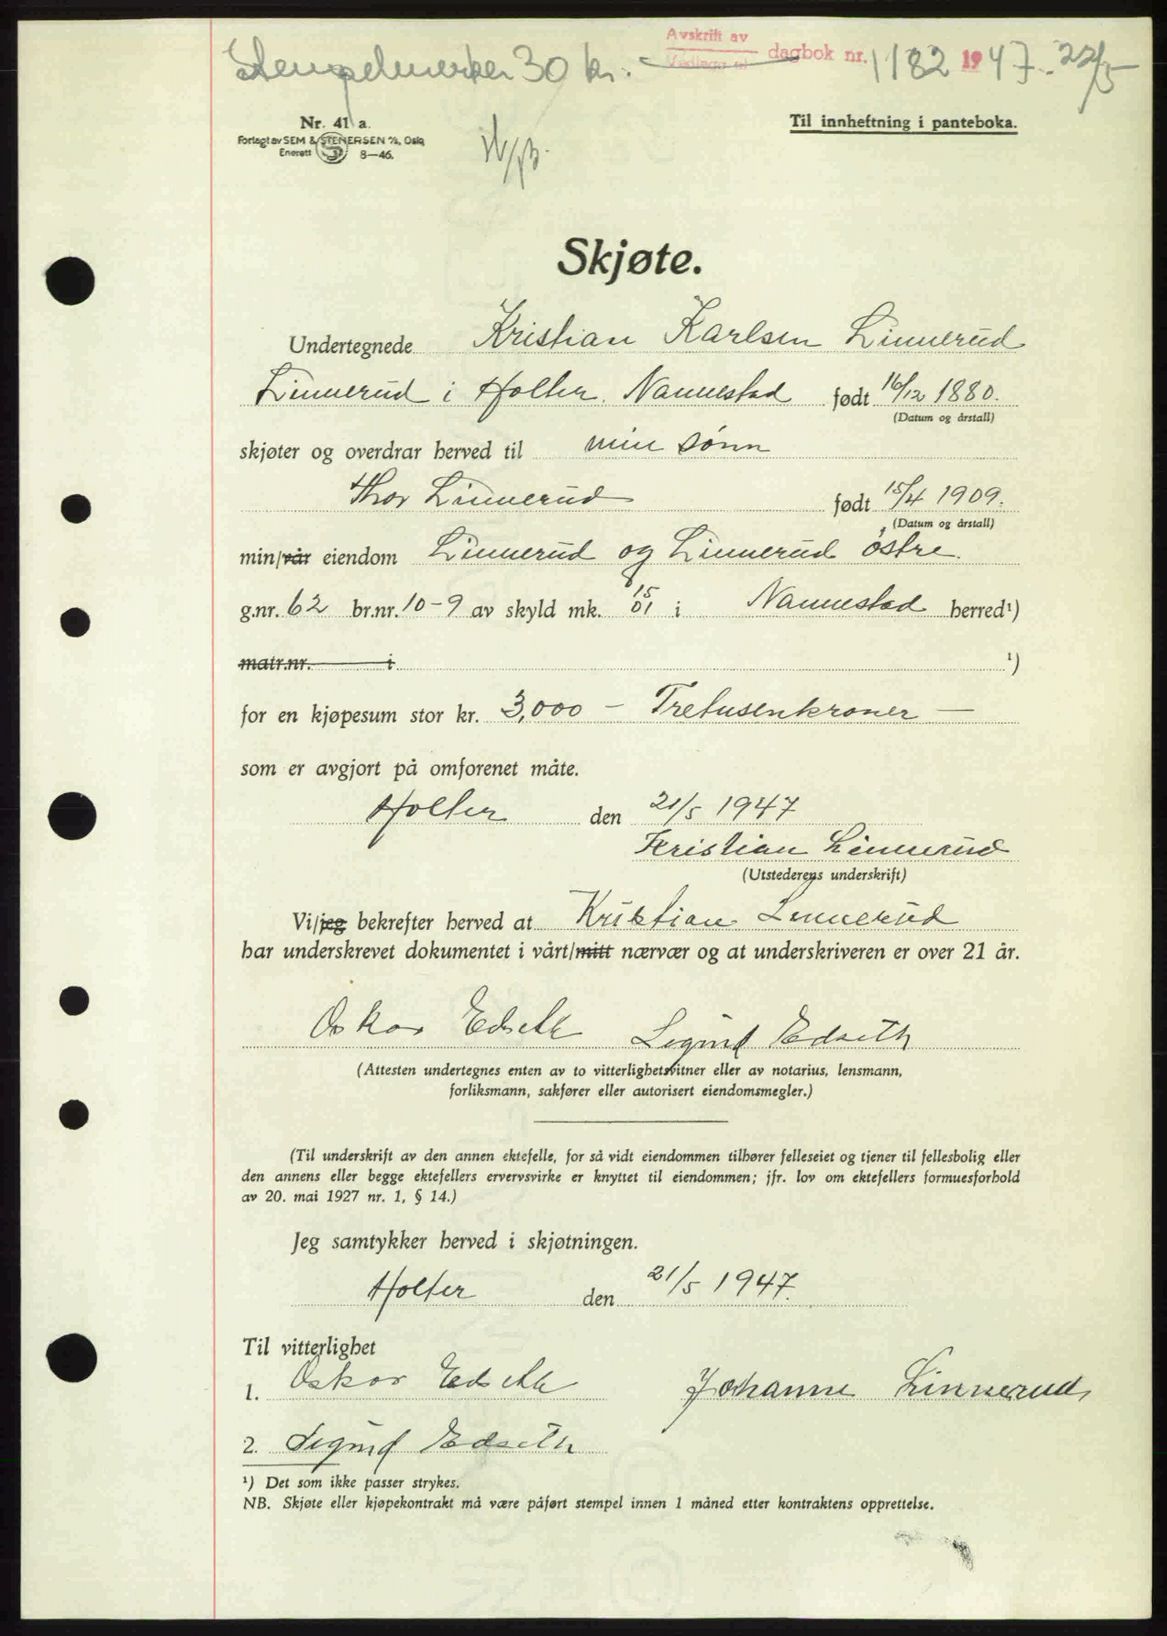 Stempelmerker 30 kr.
Avskrift av
Vedlegg til dagbok nr. 1182 1947 - 22/5
Nr. 41 a.
Forlagt av SEM & STENERSEN A/S, Oslo
Enerett 8—46.
Til innheftning i panteboka.
Skjøte.
Undertegnede Kristian Karlsen Linnerud
Linnerud i Holter. Nannestad født 16/12 1880.
(Datum og årstall)
skjøter og overdrar herved til min sønn
Thor Linnerud født 15/4 1909.
(Datum og årstall)
min/vår eiendom Linnerud og Linnerud østre.
g.nr. 62 br.nr. 10-9 av skyld mk. 15 01 i Nannestad herred¹)
matr.nr. i ¹)
for en kjøpesum stor kr. 3,000 — Tretusenkroner —
som er avgjort på omforenet måte.
Holter den 21/5 1947
Kristian Linnerud
(Utstederens underskrift)
Vi/jeg bekrefter herved at Kristian Linnerud
har underskrevet dokumentet i vårt/mitt nærvær og at underskriveren er over 21 år.
Oskar Edseth Sigurd Edseth
(Attesten undertegnes enten av to vitterlighetsvitner eller av notarius, lensmann,
forliksmann, sakfører eller autorisert eiendomsmegler.)
(Til underskrift av den annen ektefelle, for så vidt eiendommen tilhører felleseiet og tjener til fellesbolig eller
den annens eller begge ektefellers ervervsvirke er knyttet til eiendommen; jfr. lov om ektefellers formuesforhold
av 20. mai 1927 nr. 1, § 14.)
Jeg samtykker herved i skjøtningen.
Holter den 21/5 1947.
Til vitterlighet
1. Oskar Edseth Johanne Linnerud
2. Sigurd Edseth
¹) Det som ikke passer strykes.
NB. Skjøte eller kjøpekontrakt må være påført stempel innen 1 måned etter kontraktens opprettelse.